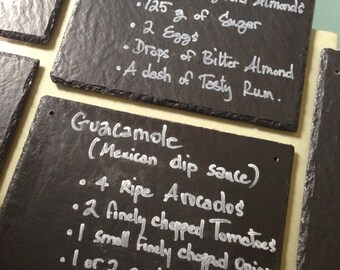 Almonds
• 125 g of Sugar
• 2 Eggs
• Drops of Bitter Almond
• A dash of Tasty Rum.
Guacamole
(Mexican dip sauce)
• 4 Ripe Avocados
• 2 finely chopped Tomatoes
• 1 small finely chopped Onion
• 1 or 2